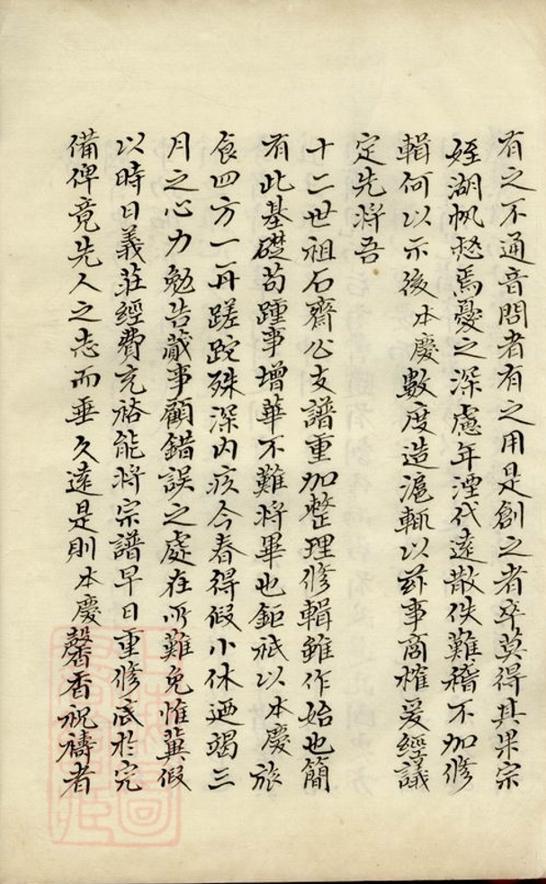 有之不通音問者有之用是創之者卒莫得其果宗
姪湖帆愁焉憂之深慮年湮代遠散佚難稽不加修
輯何以示後本慶數度造滬輒以茲事商榷爰經議
定先將吾
十二世祖石齋公支譜重加整理修輯雖作始也簡
有此基礎苟踵事增華不難將畢也鉅祇以本慶旅
食四方一再蹉跎殊深内疚今春得假小休迺竭三
月之心力勉告蕆事顧錯誤之處在所難免惟冀假
以時日義莊經費充裕能將宗譜早日重修底於完
備俾竟先人之志而垂久遠是則本慶馨香祝禱者